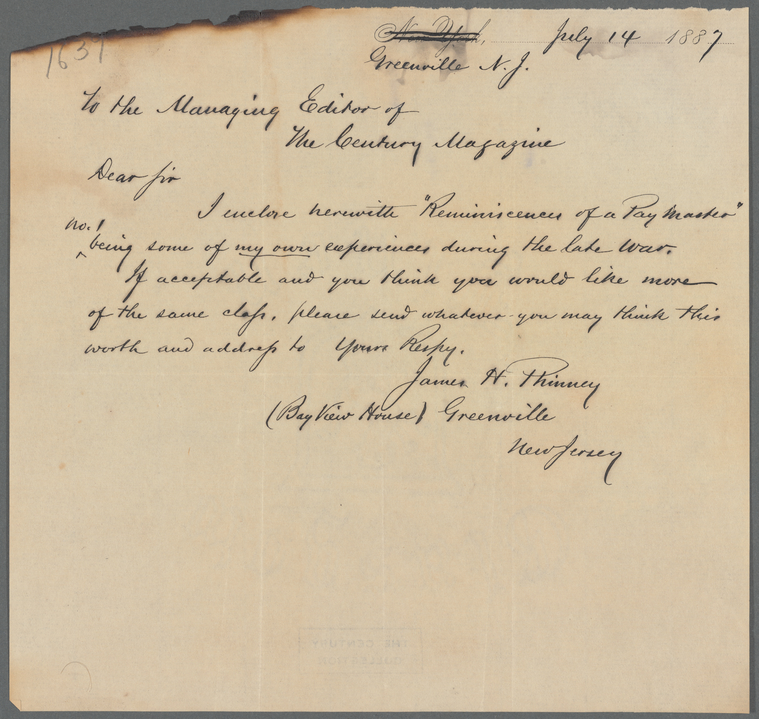 1651
New York, July 14 1887
Greenville N. J.
To the Managing Editor of
The Century Magazine
Dear Sir
I enclose herewith "Reminiscences of a Pay Master"
no. 1
being some of my own experiences during the late war.
If acceptable and you think you would like more
of the same class, please send whatever you may think this
worth and address to Yours Respy.
James H. Phinney
(Bay View House) Greenville
New Jersey
THE CENTURY
COLLECTION